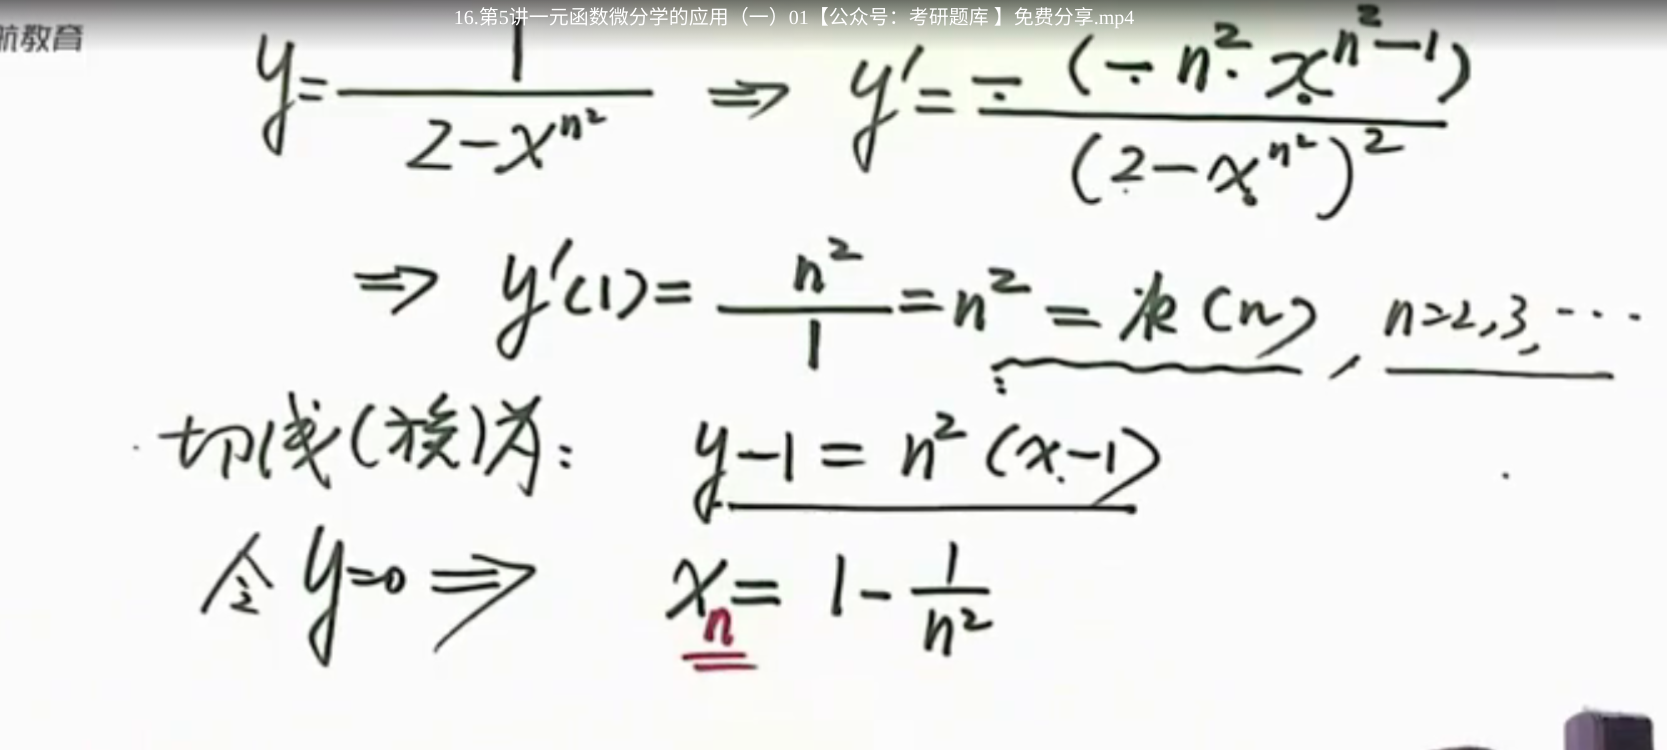 16.第5讲一元函数微分学的应用（一）01【公众号：考研题库 】免费分享.mp4
航教育
y = 1/(2-x^{n^2}) ⇒ y' = -(-n^2·x^{n^2-1})/(2-x^{n^2})^2
⇒ y'(1) = n^2/1 = n^2 = k(n), n=2,3,…
切线(族)为: y-1 = n^2(x-1)
令 y=0 ⇒ x_n = 1 - 1/n^2